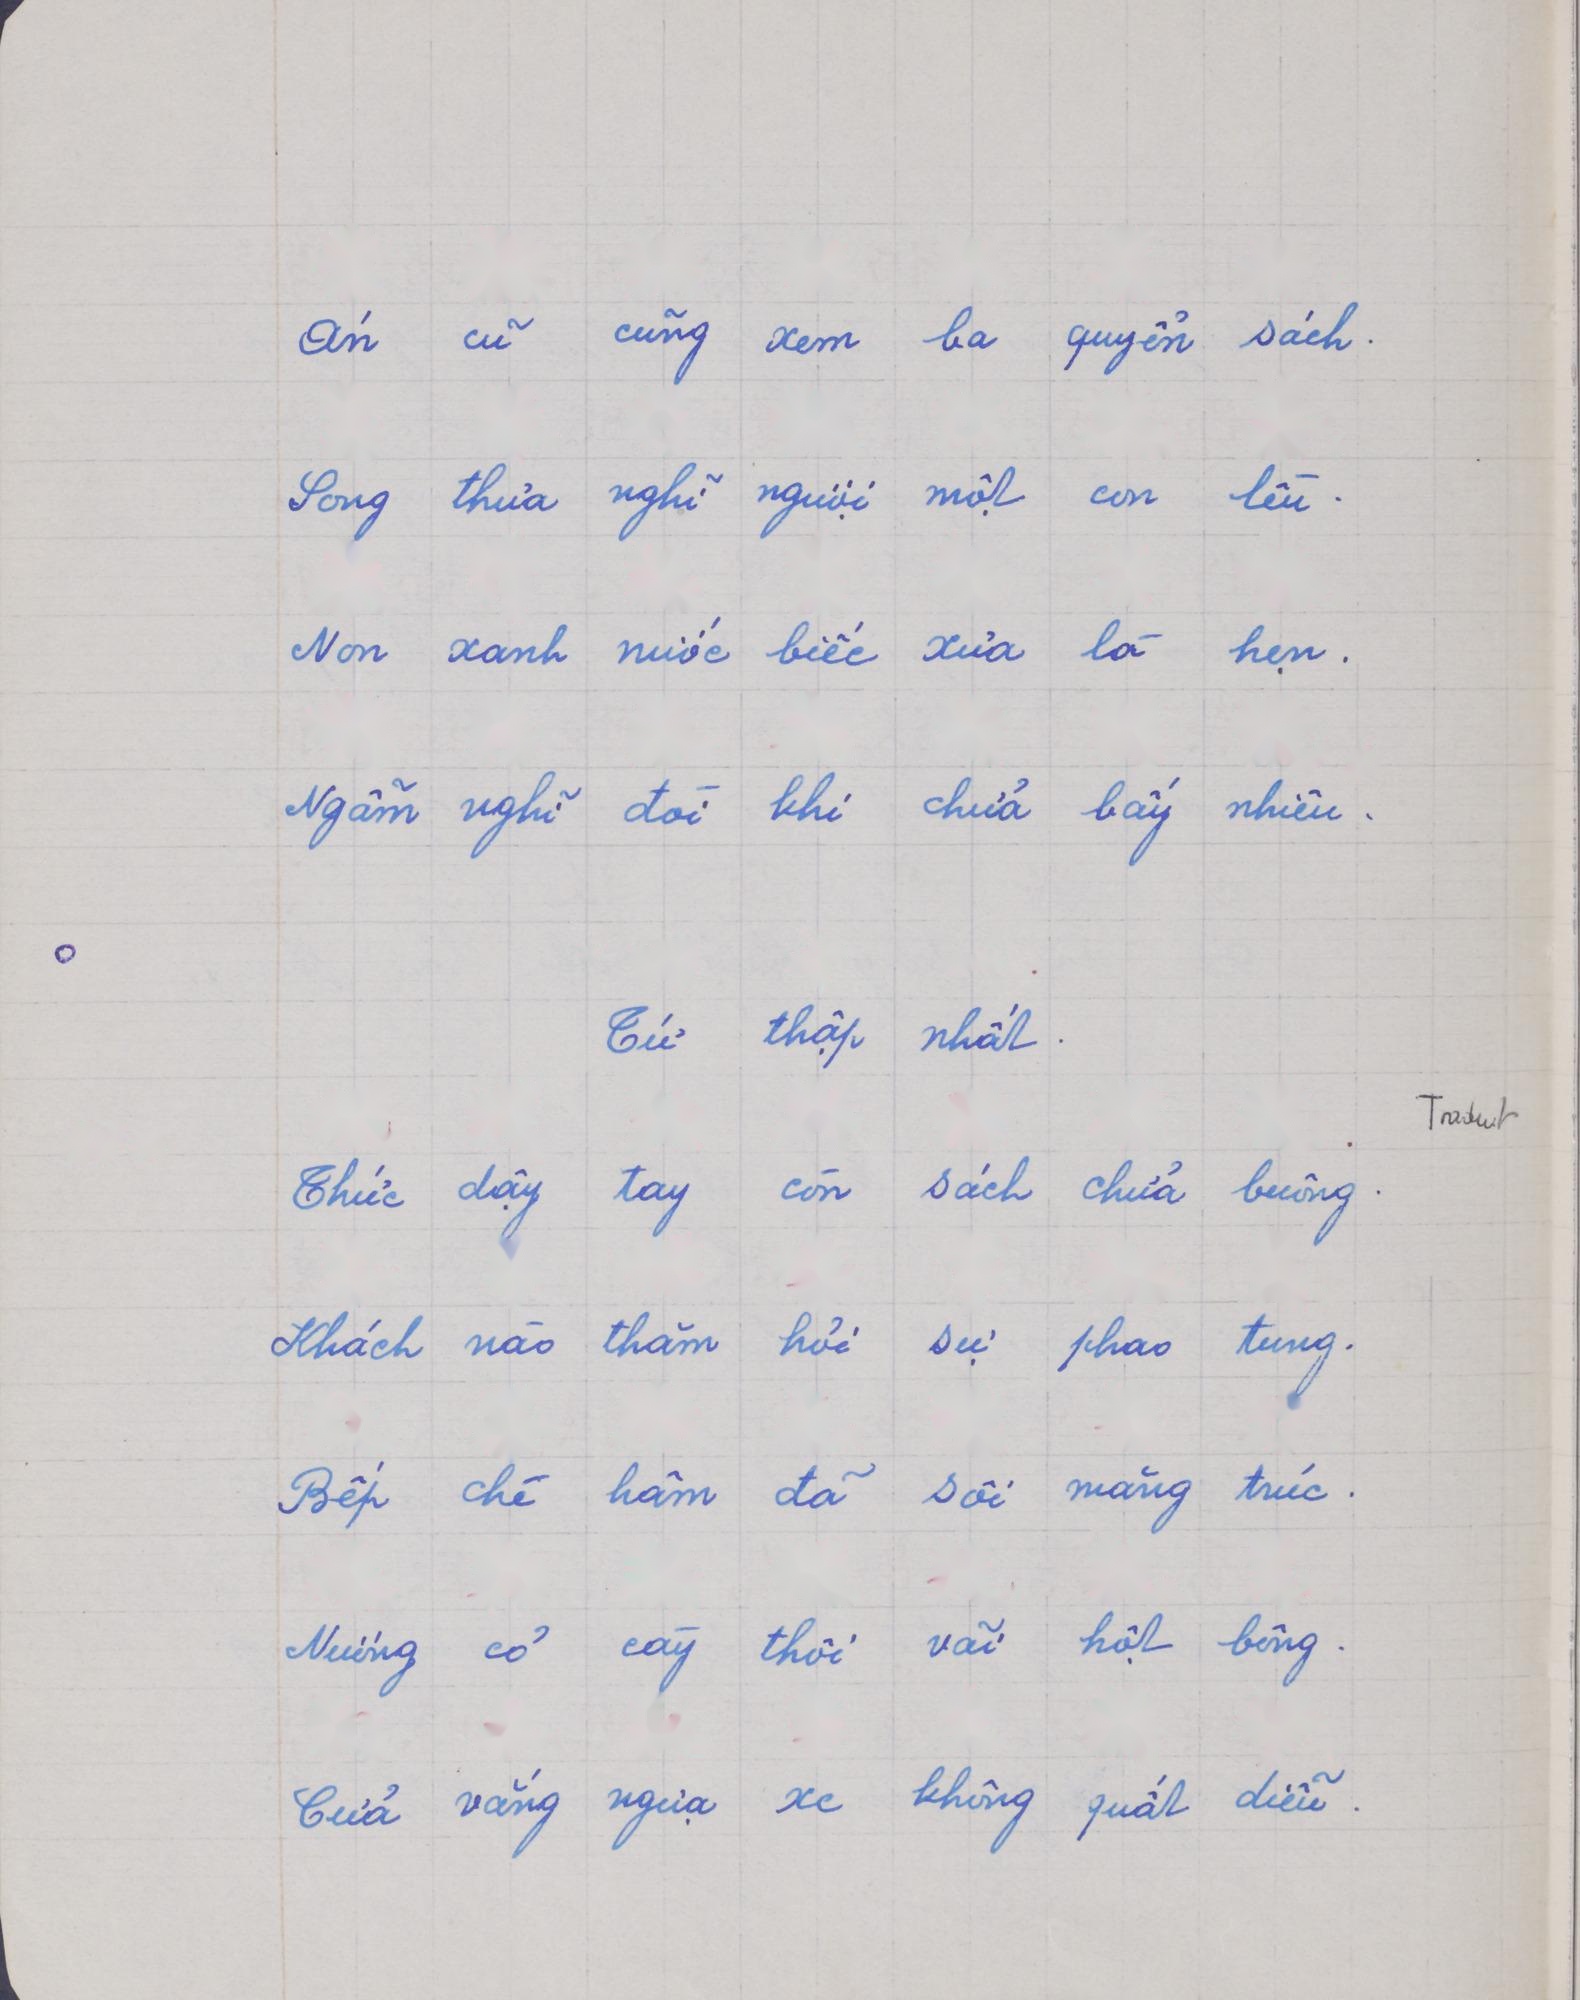 Án cũ cũng xem ba quyển sách.
Song thưa nghỉ người một con lều.
Non xanh nước biếc xưa là hẹn.
Ngẫm nghĩ đòi khi chửa bấy nhiêu.
Tứ thập nhất.
Traduit
Thức dậy tay còn sách chửa buông.
Khách nào thăm hỏi sự phao tung.
Bếp chè hâm đã sôi măng trúc.
Nương cỏ cày thôi vãi hột bông.
Cửa vắng ngựa xe không quất diễu.